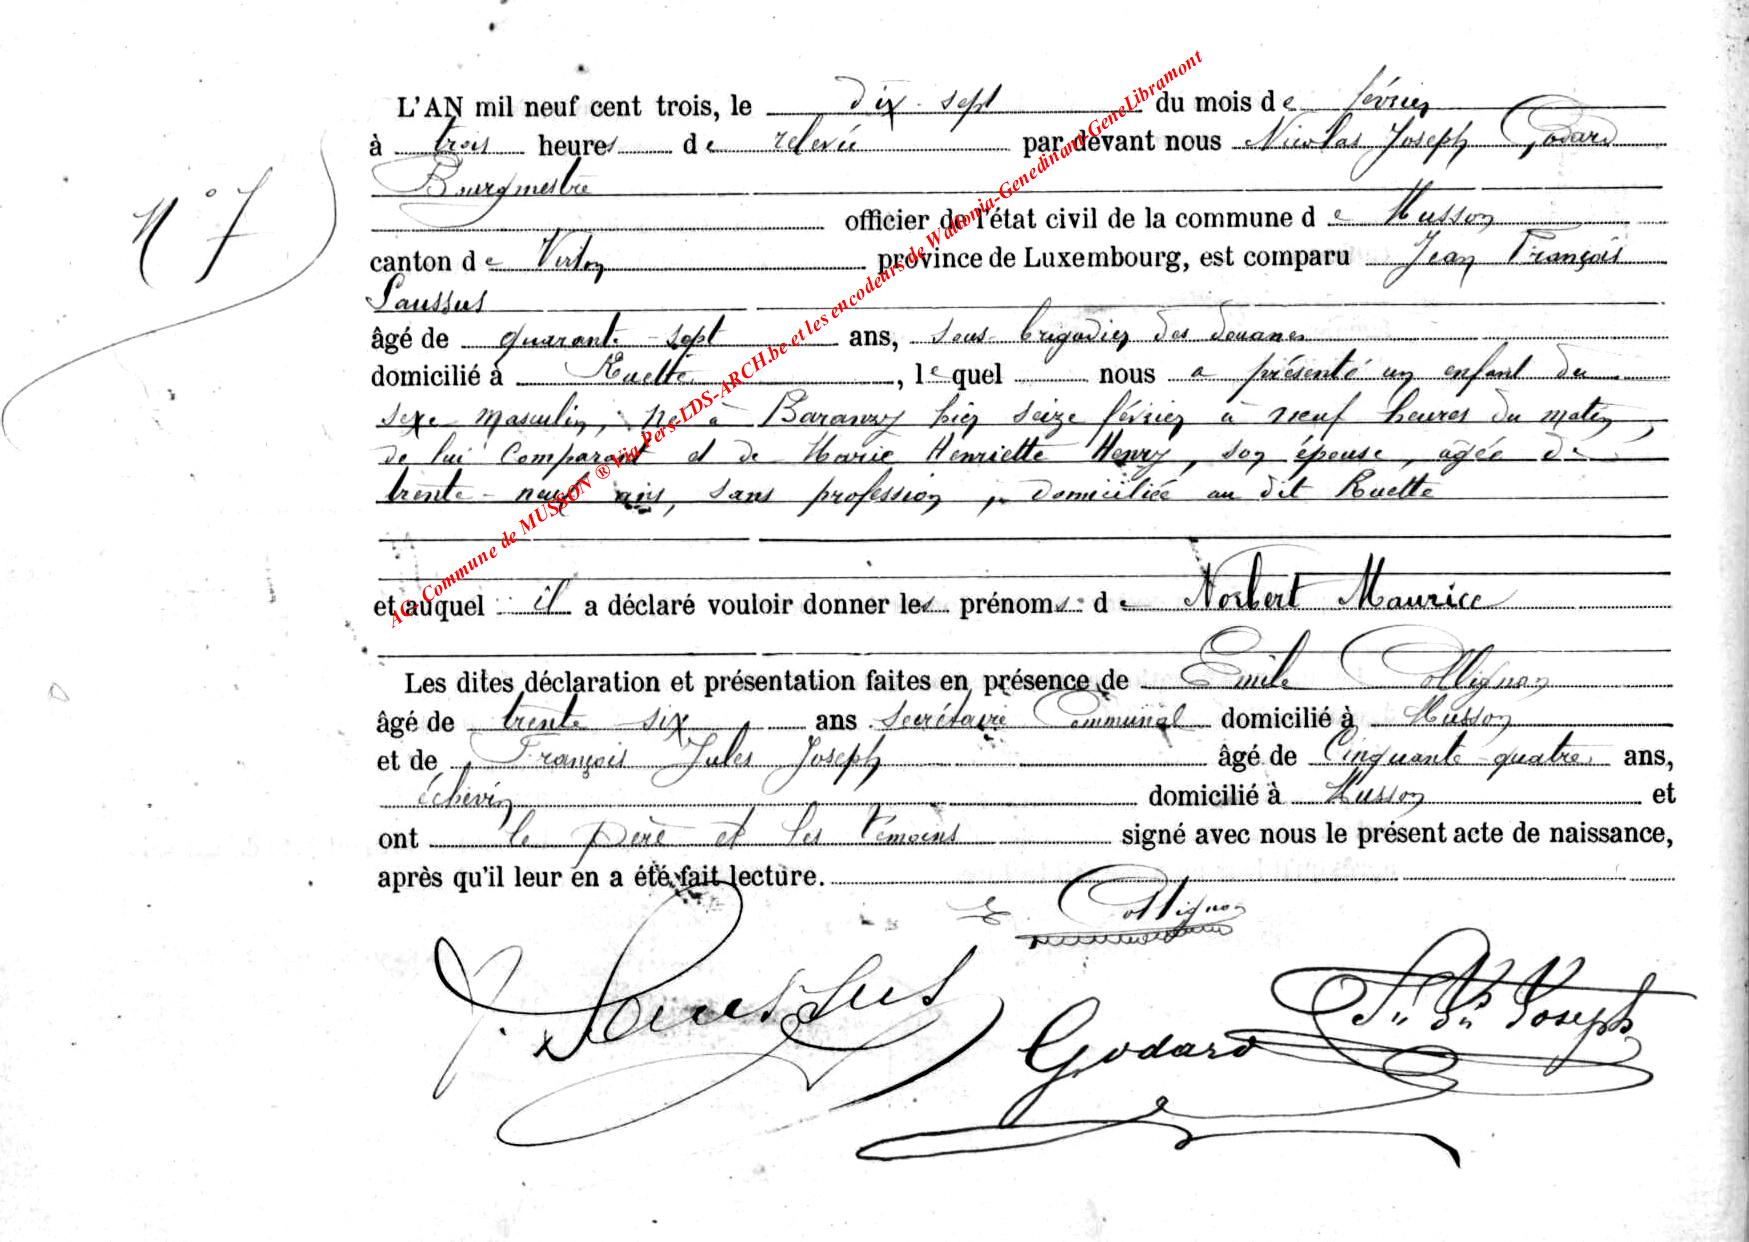 L'AN mil neuf cent trois, le dix-sept du mois de février
à trois heures de relevée par devant nous Nicolas Joseph Godard
Bourgmestre
officier de l'état civil de la commune de Musson
N° 7
canton de Virton province de Luxembourg, est comparu Jean François
Paussus
âgé de quarante-sept ans, sous-brigadier des douanes
domicilié à Ruette, lequel nous a présenté un enfant du
sexe masculin, né à Baranzy hier seize février à neuf heures du matin,
de lui comparant et de Marie Henriette Henry, son épouse, agée de
trente-neuf ans, sans profession, domiciliée au dit Ruette
et auquel il a déclaré vouloir donner les prénoms de Norbert Maurice
Les dites déclaration et présentation faites en présence de Emile Collignon
âgé de trente six ans secrétaire communal domicilié à Musson
et de François Jules Joseph âgé de cinquante-quatre ans,
échevin domicilié à Musson et
ont le père et les témoins signé avec nous le présent acte de naissance,
après qu'il leur en a été fait lecture.
E. Collignon
J. Paussus
Godard
Joseph
AG. Commune de MUSSON ® Via Pers-LDS-ARCH.be et les encodeurs de Wallonia-Genedinant-GeneLibramont